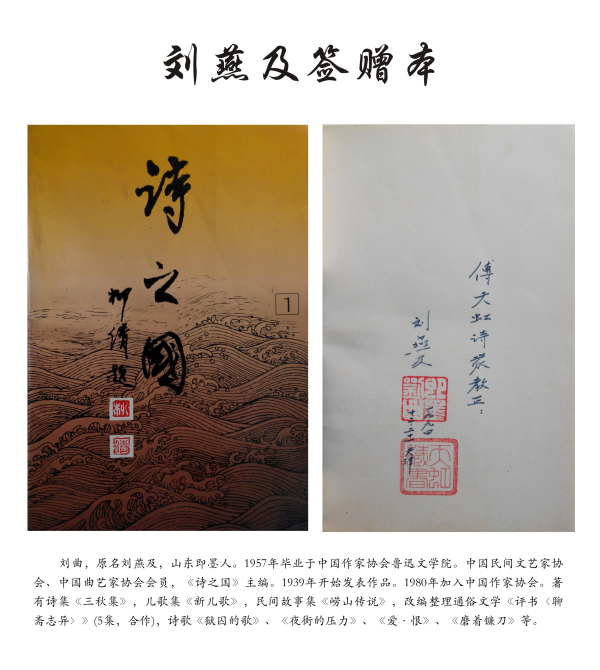 刘燕及签赠本
诗之國
柳倩题
1
傅天虹诗教正：
刘燕及
天虹藏書
刘曲，原名刘燕及，山东即墨人。1957年毕业于中国作家协会鲁迅文学院。中国民间文艺家协
会、中国曲艺家协会会员，《诗之国》主编。1939年开始发表作品。1980年加入中国作家协会。著
有诗集《三秋集》，儿歌集《新儿歌》，民间故事集《崂山传说》，改编整理通俗文学《评书〈聊
斋志异〉》(5集，合作)，诗歌《狱囚的歌》、《夜街的压力》、《爱·恨》、《磨着镰刀》等。